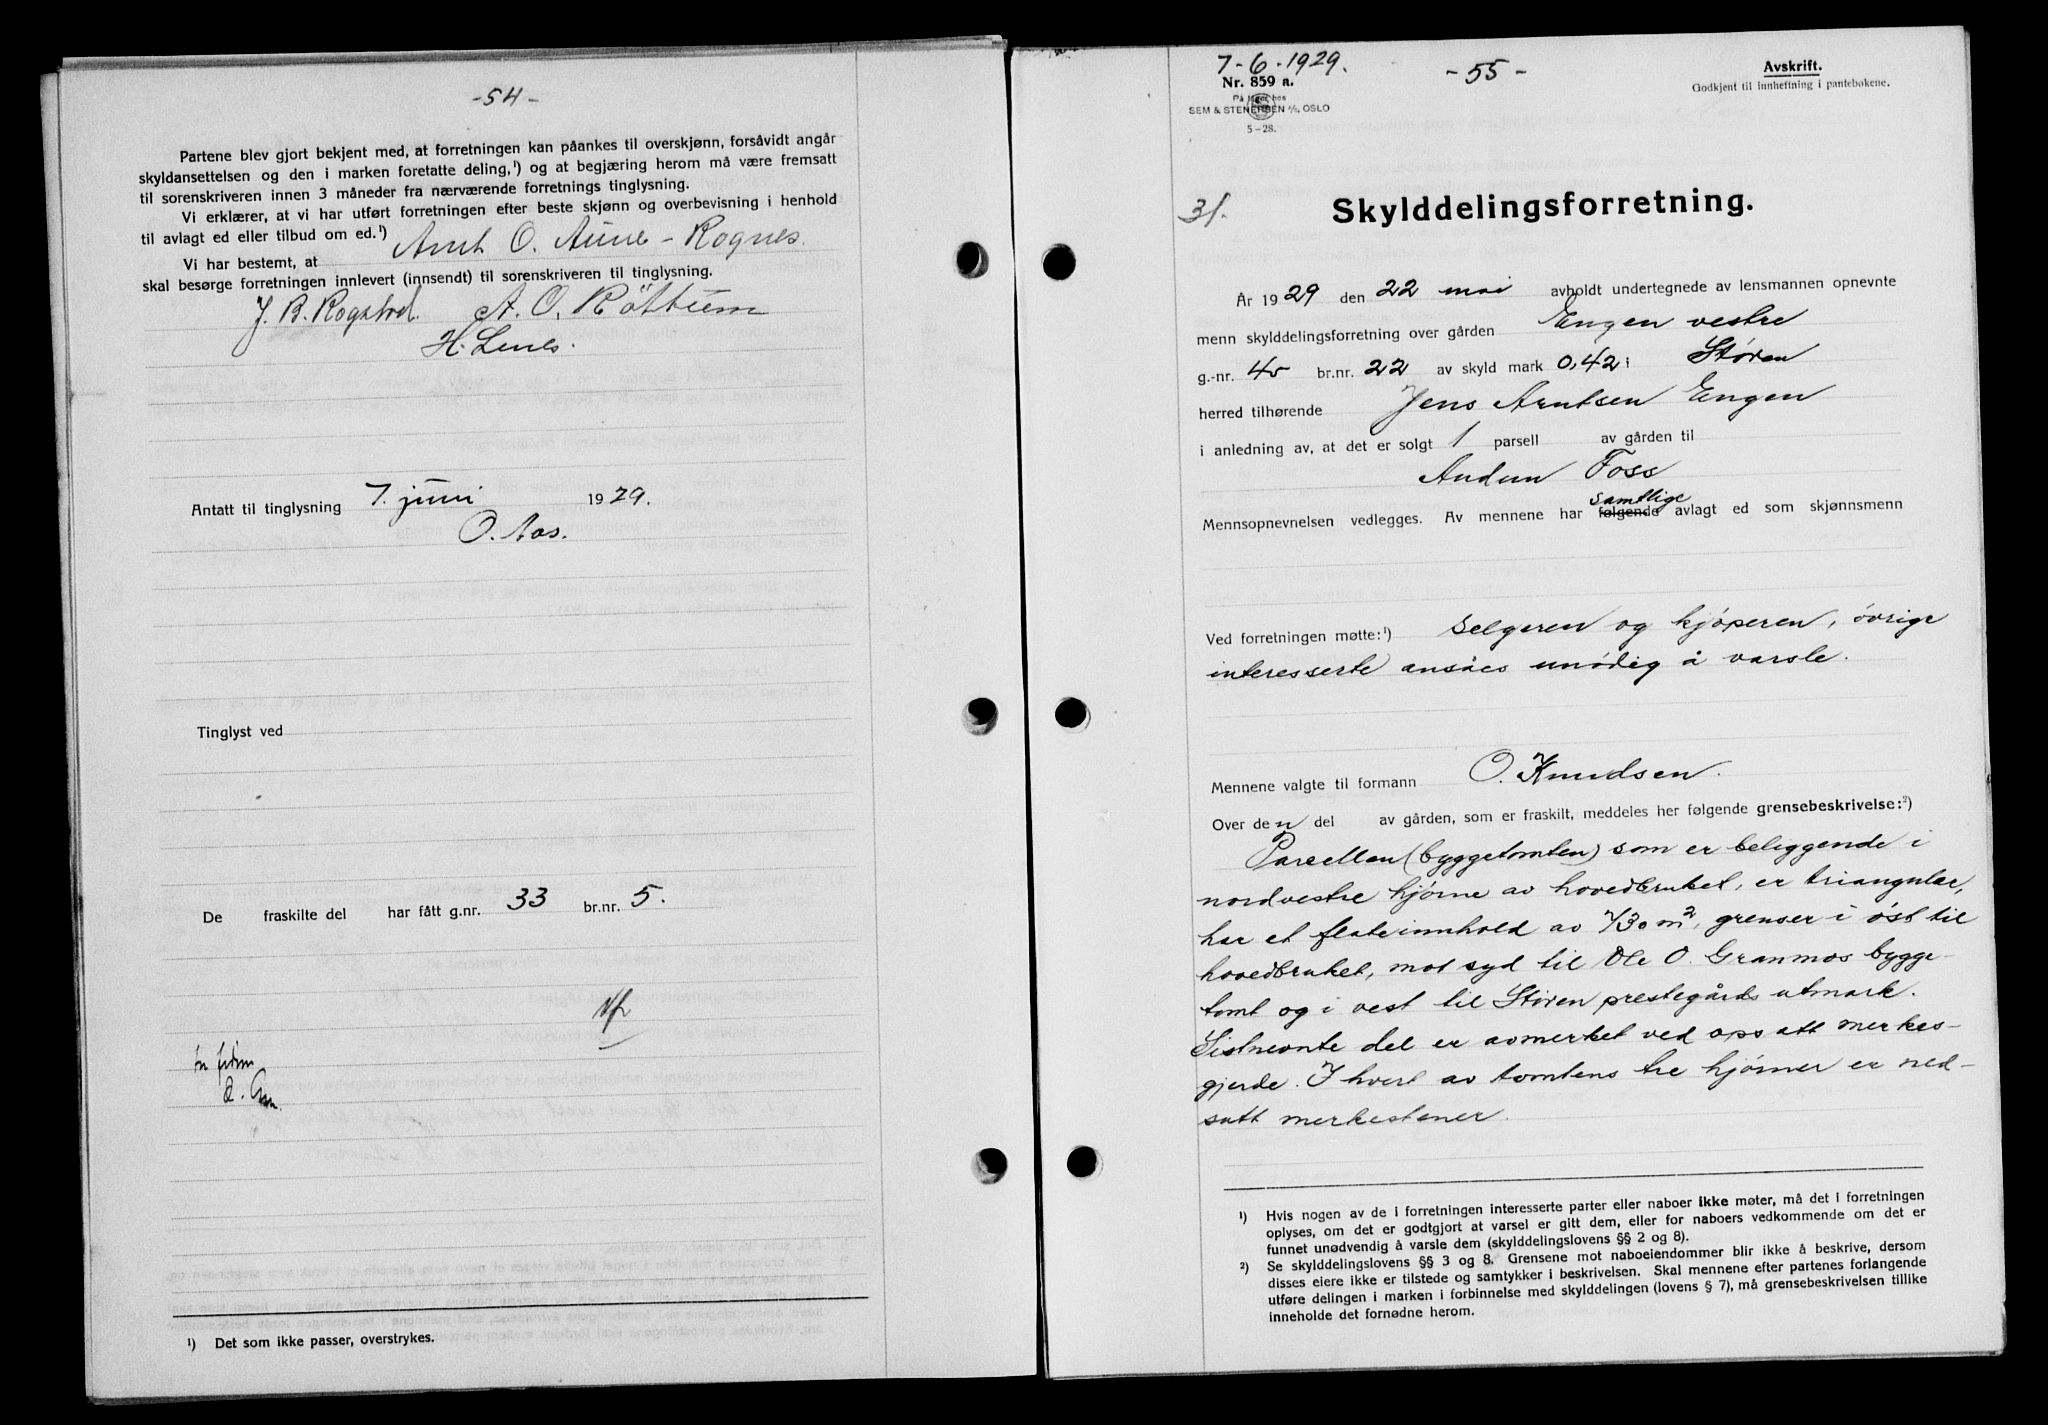 - 54 -
Partene blev gjort bekjent med, at forretningen kan påankes til overskjønn, forsåvidt angår
skyldansettelsen og den i marken foretatte deling,¹) og at begjæring herom må være fremsatt
til sorenskriveren innen 3 måneder fra nærværende forretnings tinglysning.
Vi erklærer, at vi har utført forretningen efter beste skjønn og overbevisning i henhold
til avlagt ed eller tilbud om ed.¹)
Vi har bestemt, at Arnt O. Aune - Rognes.
skal besørge forretningen innlevert (innsendt) til sorenskriveren til tinglysning.
J. B. Rogstad. A. O. Röttum
H. Lenes.
Antatt til tinglysning 7. juni 1929.
O. Aas.
Tinglyst ved
De fraskilte del har fått g.nr. 33 br.nr. 5.
¹) Det som ikke passer, overstrykes.
7-6-1929.
Nr. 859 a.
På lager hos
SEM & STENERSEN A/S, OSLO
5-28.
- 55 -
Avskrift.
Godkjent til innheftning i pantebøkene.
31.
Skylddelingsforretning.
År 1929 den 22 mai avholdt undertegnede av lensmannen opnevnte
menn skylddelingsforretning over gården Engen vestre
g.-nr. 45 br.nr. 22 av skyld mark 0,42 i Støren
herred tilhørende Jens Arntsen Engen
i anledning av, at det er solgt 1 parsell av gården til
Audun Foss
samtlige
Mennsopnevnelsen vedlegges. Av mennene har følgende avlagt ed som skjønnsmenn
Ved forretningen møtte:¹) selgeren og kjøperen, øvrige
interesserte ansåes unødig å varsle.
Mennene valgte til formann O. Knudsen.
Over den del av gården, som er fraskilt, meddeles her følgende grensebeskrivelse:²)
Parcellen (byggetomten) som er beliggende i
nordvestre hjørne av hovedbruket, er triangulær,
har et flateinnhold av 730 m², grenser i øst til
hovedbruket, mot syd til Ole O. Granmos bygge-
tomt og i vest til Støren prestegårds utmark.
Sistnevnte del er avmerket ved opsatt merkes-
gjerde. I hvert av tomtens tre hjørner er ned-
satt merkestener.
¹) Hvis nogen av de i forretningen interesserte parter eller naboer ikke møter, må det i forretningen
oplyses, om det er godtgjort at varsel er gitt dem, eller for naboers vedkommende om det er
funnet unødvendig å varsle dem (skylddelingslovens §§ 2 og 8).
²) Se skylddelingslovens §§ 3 og 8. Grensene mot naboeiendommer blir ikke å beskrive, dersom
disses eiere ikke er tilstede og samtykker i beskrivelsen. Skal mennene efter partenes forlangende
utføre delingen i marken i forbinnelse med skylddelingen (lovens § 7), må grensebeskrivelsen tillike
inneholde det fornødne herom.